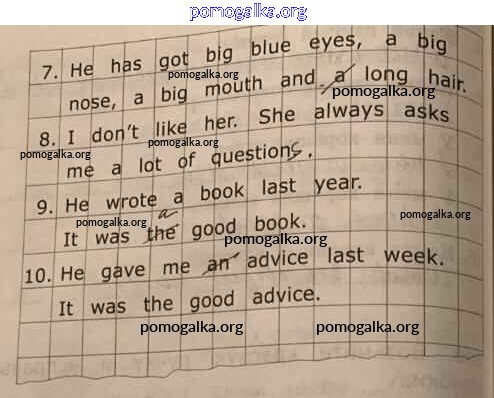 pomogalka.org
7. He has got big blue eyes, a big
pomogalka.org
nose, a big mouth and a long hair.
pomogalka.org
8. I don't like her. She always asks
pomogalka.org
pomogalka.org
me a lot of questions.
9. He wrote a book last year.
a
pomogalka.org
pomogalka.org
It was the good book.
pomogalka.org
10. He gave me an advice last week.
It was the good advice.
pomogalka.org
pomogalka.org